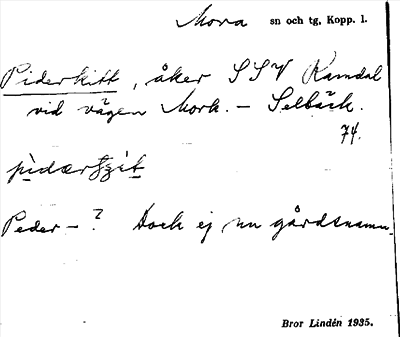 Mora sn och tg, Kopp. l.
Piderkitt, åker SSV Ramdal
vid vägen Mork. - Selbäck.
74.
Peder - ? Dock ej nu gårdsnamn.
Bror Lindén 1935.